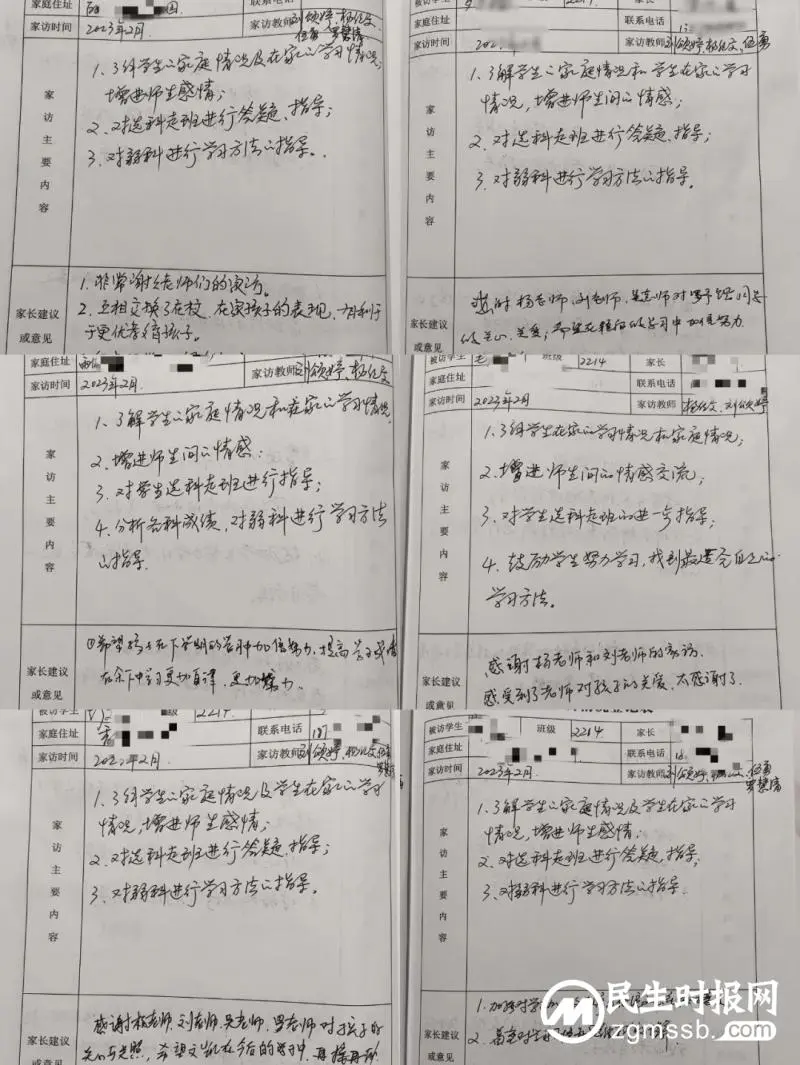 家庭住址
联系电话
家访时间 2023年2月. 家访教师 刘颂婷、杨仕文
家访主要内容
1、了解学生的家庭情况及在家的学习情况,
增进师生感情;
2、对选科走班进行答疑、指导;
3、对弱科进行学习方法的指导.
家长建议
或意见
1. 非常谢谢老师们的家访.
2. 互相交换了在校、在家孩子的表现,
于更优教育孩子。
被访学生
家庭住址
联系电话
家访时间 202
家访教师
家访主要内容
1、了解学生的家庭情况和学生在家的学习
情况,增进师生间的情感;
2、对选科走班进行答疑、指导;
3、对弱科进行学习方法的指导.
家长建议
或意见
杨老师,刘老师,
家庭住址
联系电话
家访时间 2023年2月. 家访教师 刘颂婷、杨仕文
家访主要内容
1、了解学生的家庭情况和在家的学习情况
2、增进师生间的情感;
3、对学生选科走班进行指导;
4、分析各科成绩,对弱科进行学习方法
的指导.
家长建议
或意见
①希望孩子在下学期的学习中加倍努力,提高学习成绩
更加自律,更加努力.
被访学生 班级 2214 家长
家庭住址 联系电话
家访时间 2023年2月 家访教师 杨仕文、刘颂婷
家访主要内容
1、了解学生在家的学习情况和家庭情况;
2、增进师生间的情感交流;
3、对学生选科走班的进一步指导;
4、鼓励学生努力学习,找到最适合自己的
学习方法。
家长建议
或意见
感谢杨老师和刘老师的家访.
感受到了老师对孩子的关爱,太感谢了.
被访学生 班级 2214
家庭住址 联系电话
家访时间 2023年2月. 家访教师 刘颂婷、杨仕文
家访主要内容
1、了解学生的家庭情况及学生在家的学习
情况,增进师生感情;
2、对选科走班进行答疑、指导;
3、对弱科进行学习方法的指导。
家长建议
或意见
感谢杨老师,刘老师,吴老师,罗老师对孩子的
关心与光照,希望 在今后的学习中,再接再励
被访学生 班级 2214 家长
家庭住址 联系电话
家访时间 2023年2月. 家访教师 刘颂婷、
家访主要内容
1、了解学生的家庭情况及学生在家的学习
情况,增进师生感情;
2、对选科走班进行答疑、指导;
3、对弱科进行学习方法的指导.
家长建议
或意见
1. 加强对学
2.
民生时报网
zgmssb.com